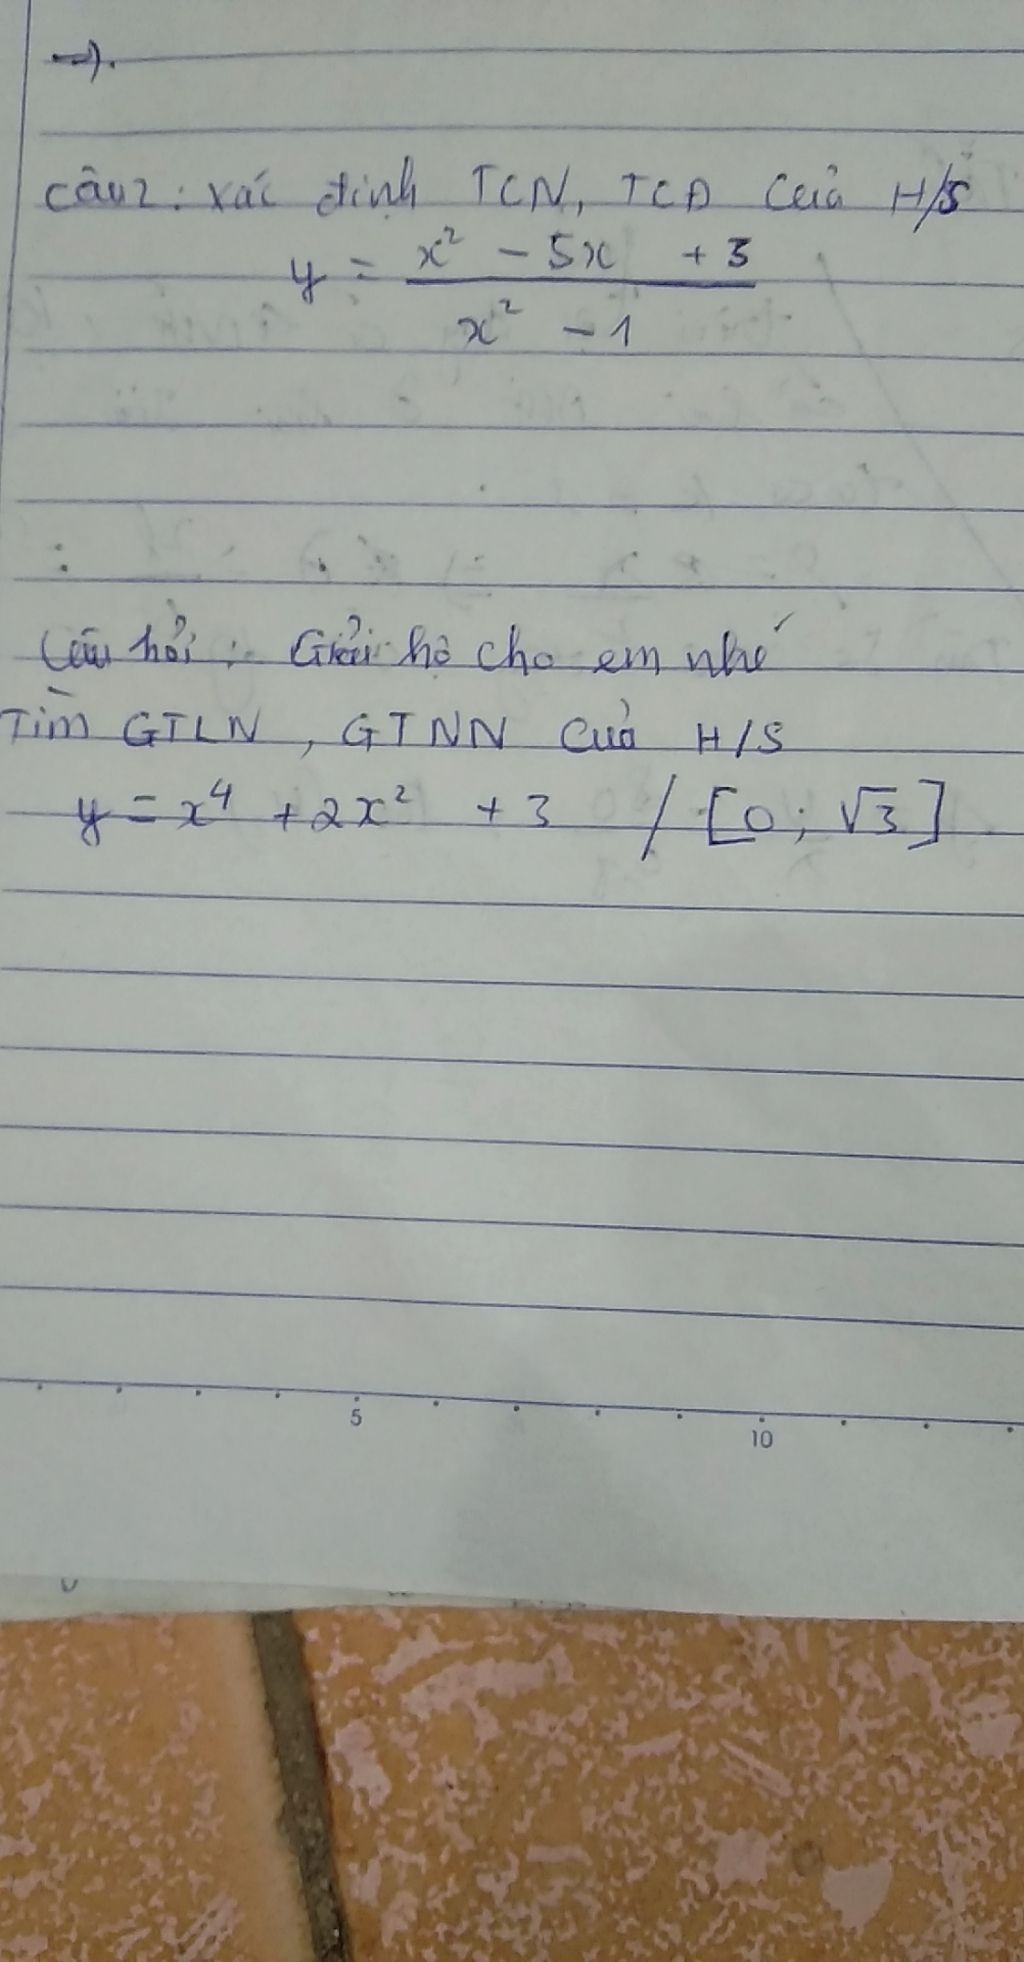 →).
Câu2: xác định TCN, TCĐ của H/S
y = x² - 5x + 3 / x² - 1
:
Câu hỏi: Giải hộ cho em nhé
Tìm GTLN, GTNN của H/S
y = x⁴ + 2x² + 3 / [0; √3]
5 10